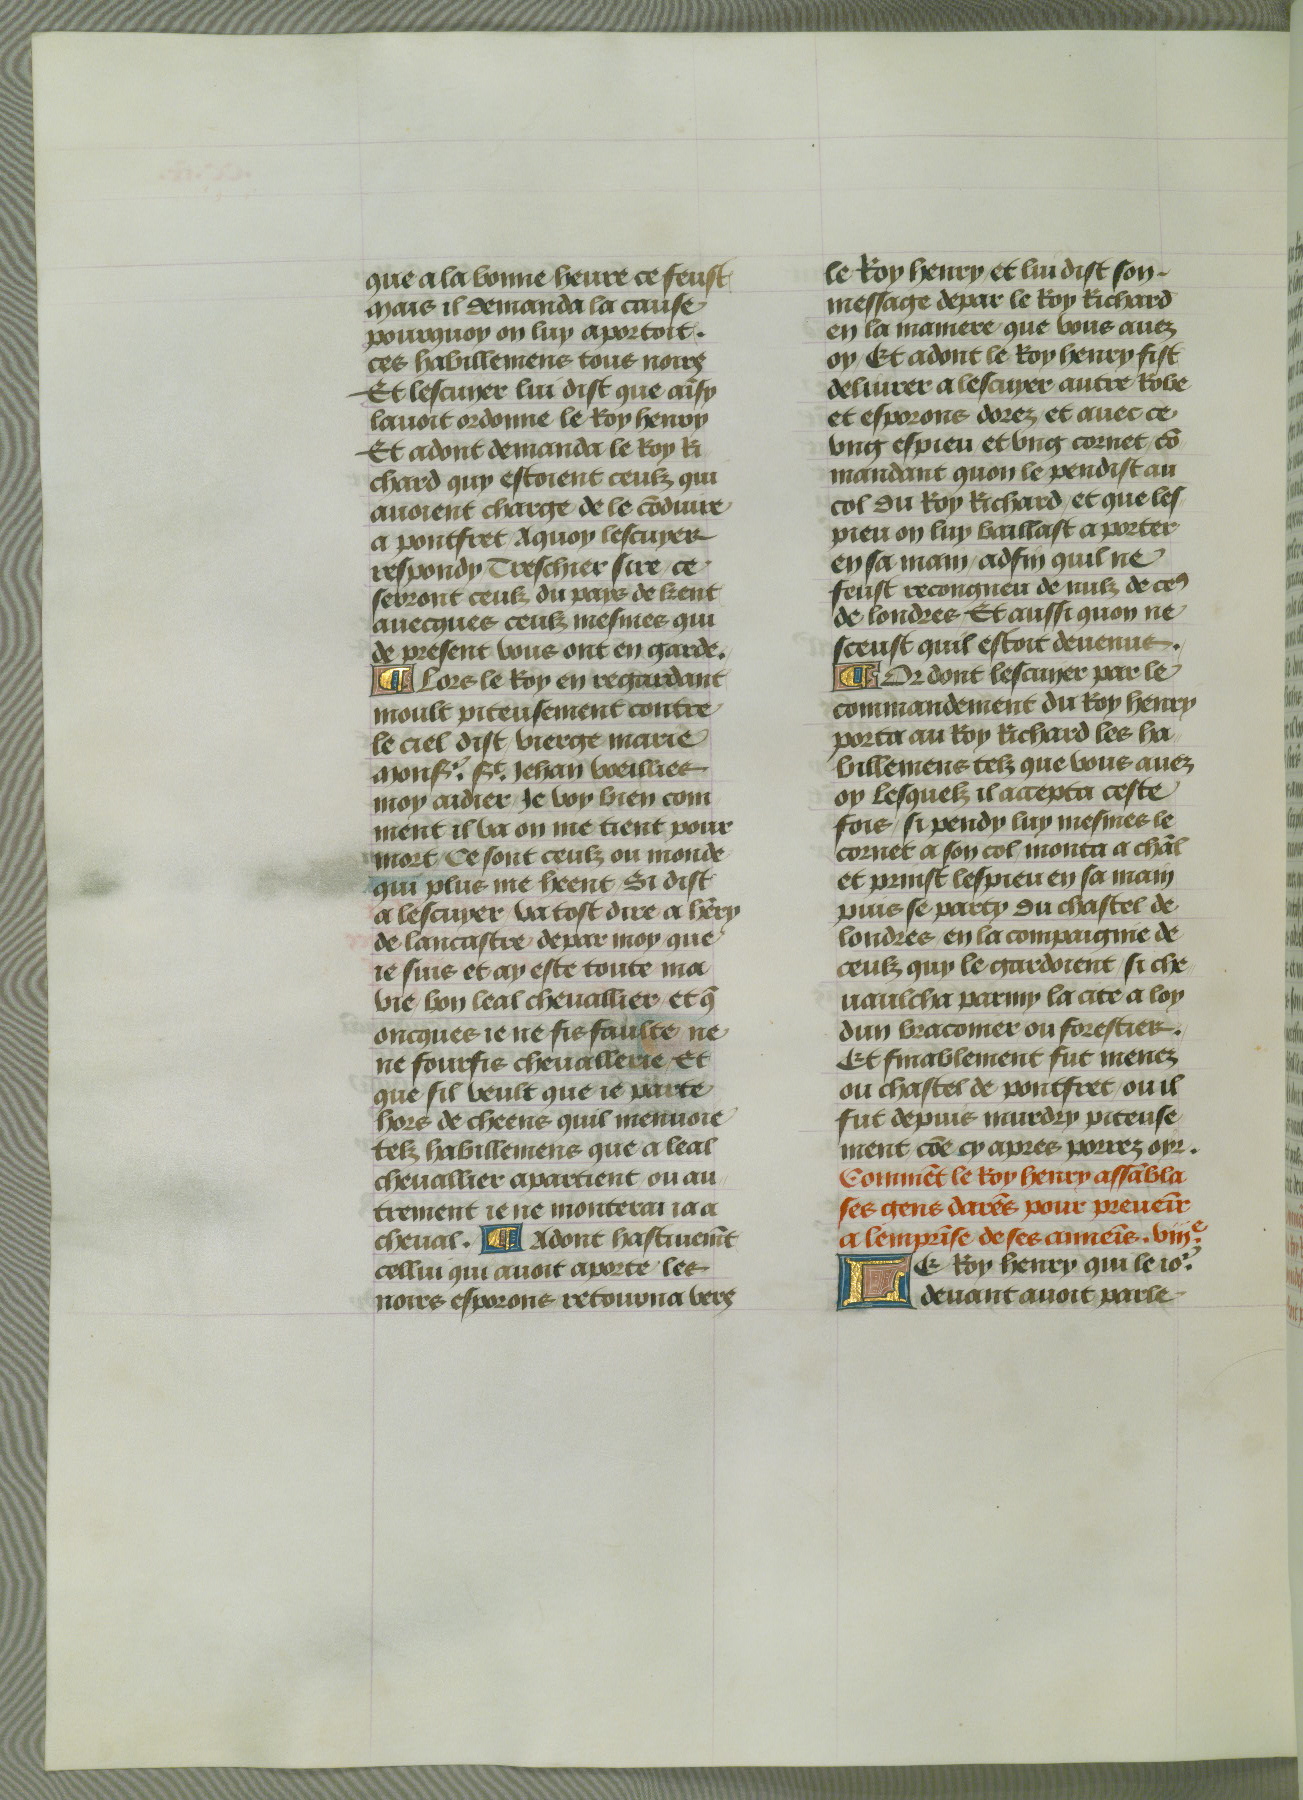 que a la bonne heure ce feust
Mais il demanda la cause
pourquoy on luy aportoit.
ces habillemens tous noirs
Et lescuyer lui dist que aĩsy
lauoit ordonne le Roy henry
Et adont demanda le Roy Ri
chard quy estoient ceulz qui
auoient charge de le cõduire
a pontfret Aquoy lescuyer
respondy Treschier sire / ce
seront ceulz du pays de kent
auecques ceulz mesmes qui
de present vous ont en garde.
¶ Lors le Roy en regardant
moult piteusement contre
le ciel dist / vierge marie
Monsr. St. Jehan voeillies
moy aidier Je voy bien com
ment il va on me tient pour
mort / Ce sont ceulz ou monde
qui plus me heent / Si dist
a lescuyer / va tost dire a hẽry
de lancastre / de par moy que
ie suis et ay este toute ma
vie / bon leal cheuallier / et q̃
oncques ie ne fis faulte / ne
ne fourfis cheuallerie / Et
que sil veult que ie parte
hors de cheens quil menuoie
telz habillemens que a leal
cheuallier apartient ou au
trement ie ne monterai ia a
cheual. ¶ Adont hastiuemẽt
cellui qui auoit aporte / les
noirs esporons retourna vers
le Roy henry et lui dist son
message de par le Roy Richard
en la maniere / que vous auez
oy / Et adont le Roy henry fist
deliurer a lescuyer autre Robe
et esporons dorez et auec ce
vng espieu et vng cornet cõ
mandant quon le pendist au
col du Roy Richard / et que les
pieu on luy baillast a porter
en sa main / adfin quil ne
feust recongneu de nulz de ceꝰ
de londres Et aussi quon ne
sceust quil estoit deuenus.
¶ Or dont lescuyer par le
commandement du Roy henry
porta au Roy Richard les ha
billemens telz que vous auez
oy Lesquelz il accepta ceste
fois / si pendy luy mesmes le
cornet a son col / monta a chãl
et prinst lespieu en sa main
puis se party du chastel de
londres / en la compaignie de
ceulz quy le gardoient / si che
uaulcha parmy la cite a loy
dun braconier ou forestier.
Et finablement fut menez
ou chastel de pontfret / ou il
fut depuis murdry piteuse
ment cõe cy apres porrez oyr.
Commẽt le Roy henry assãbla
ses gens darẽs pour preuenĩr
a lemprĩse de ses annemĩs. viije.
LE Roy henry qui le ior.
deuant auoit parle